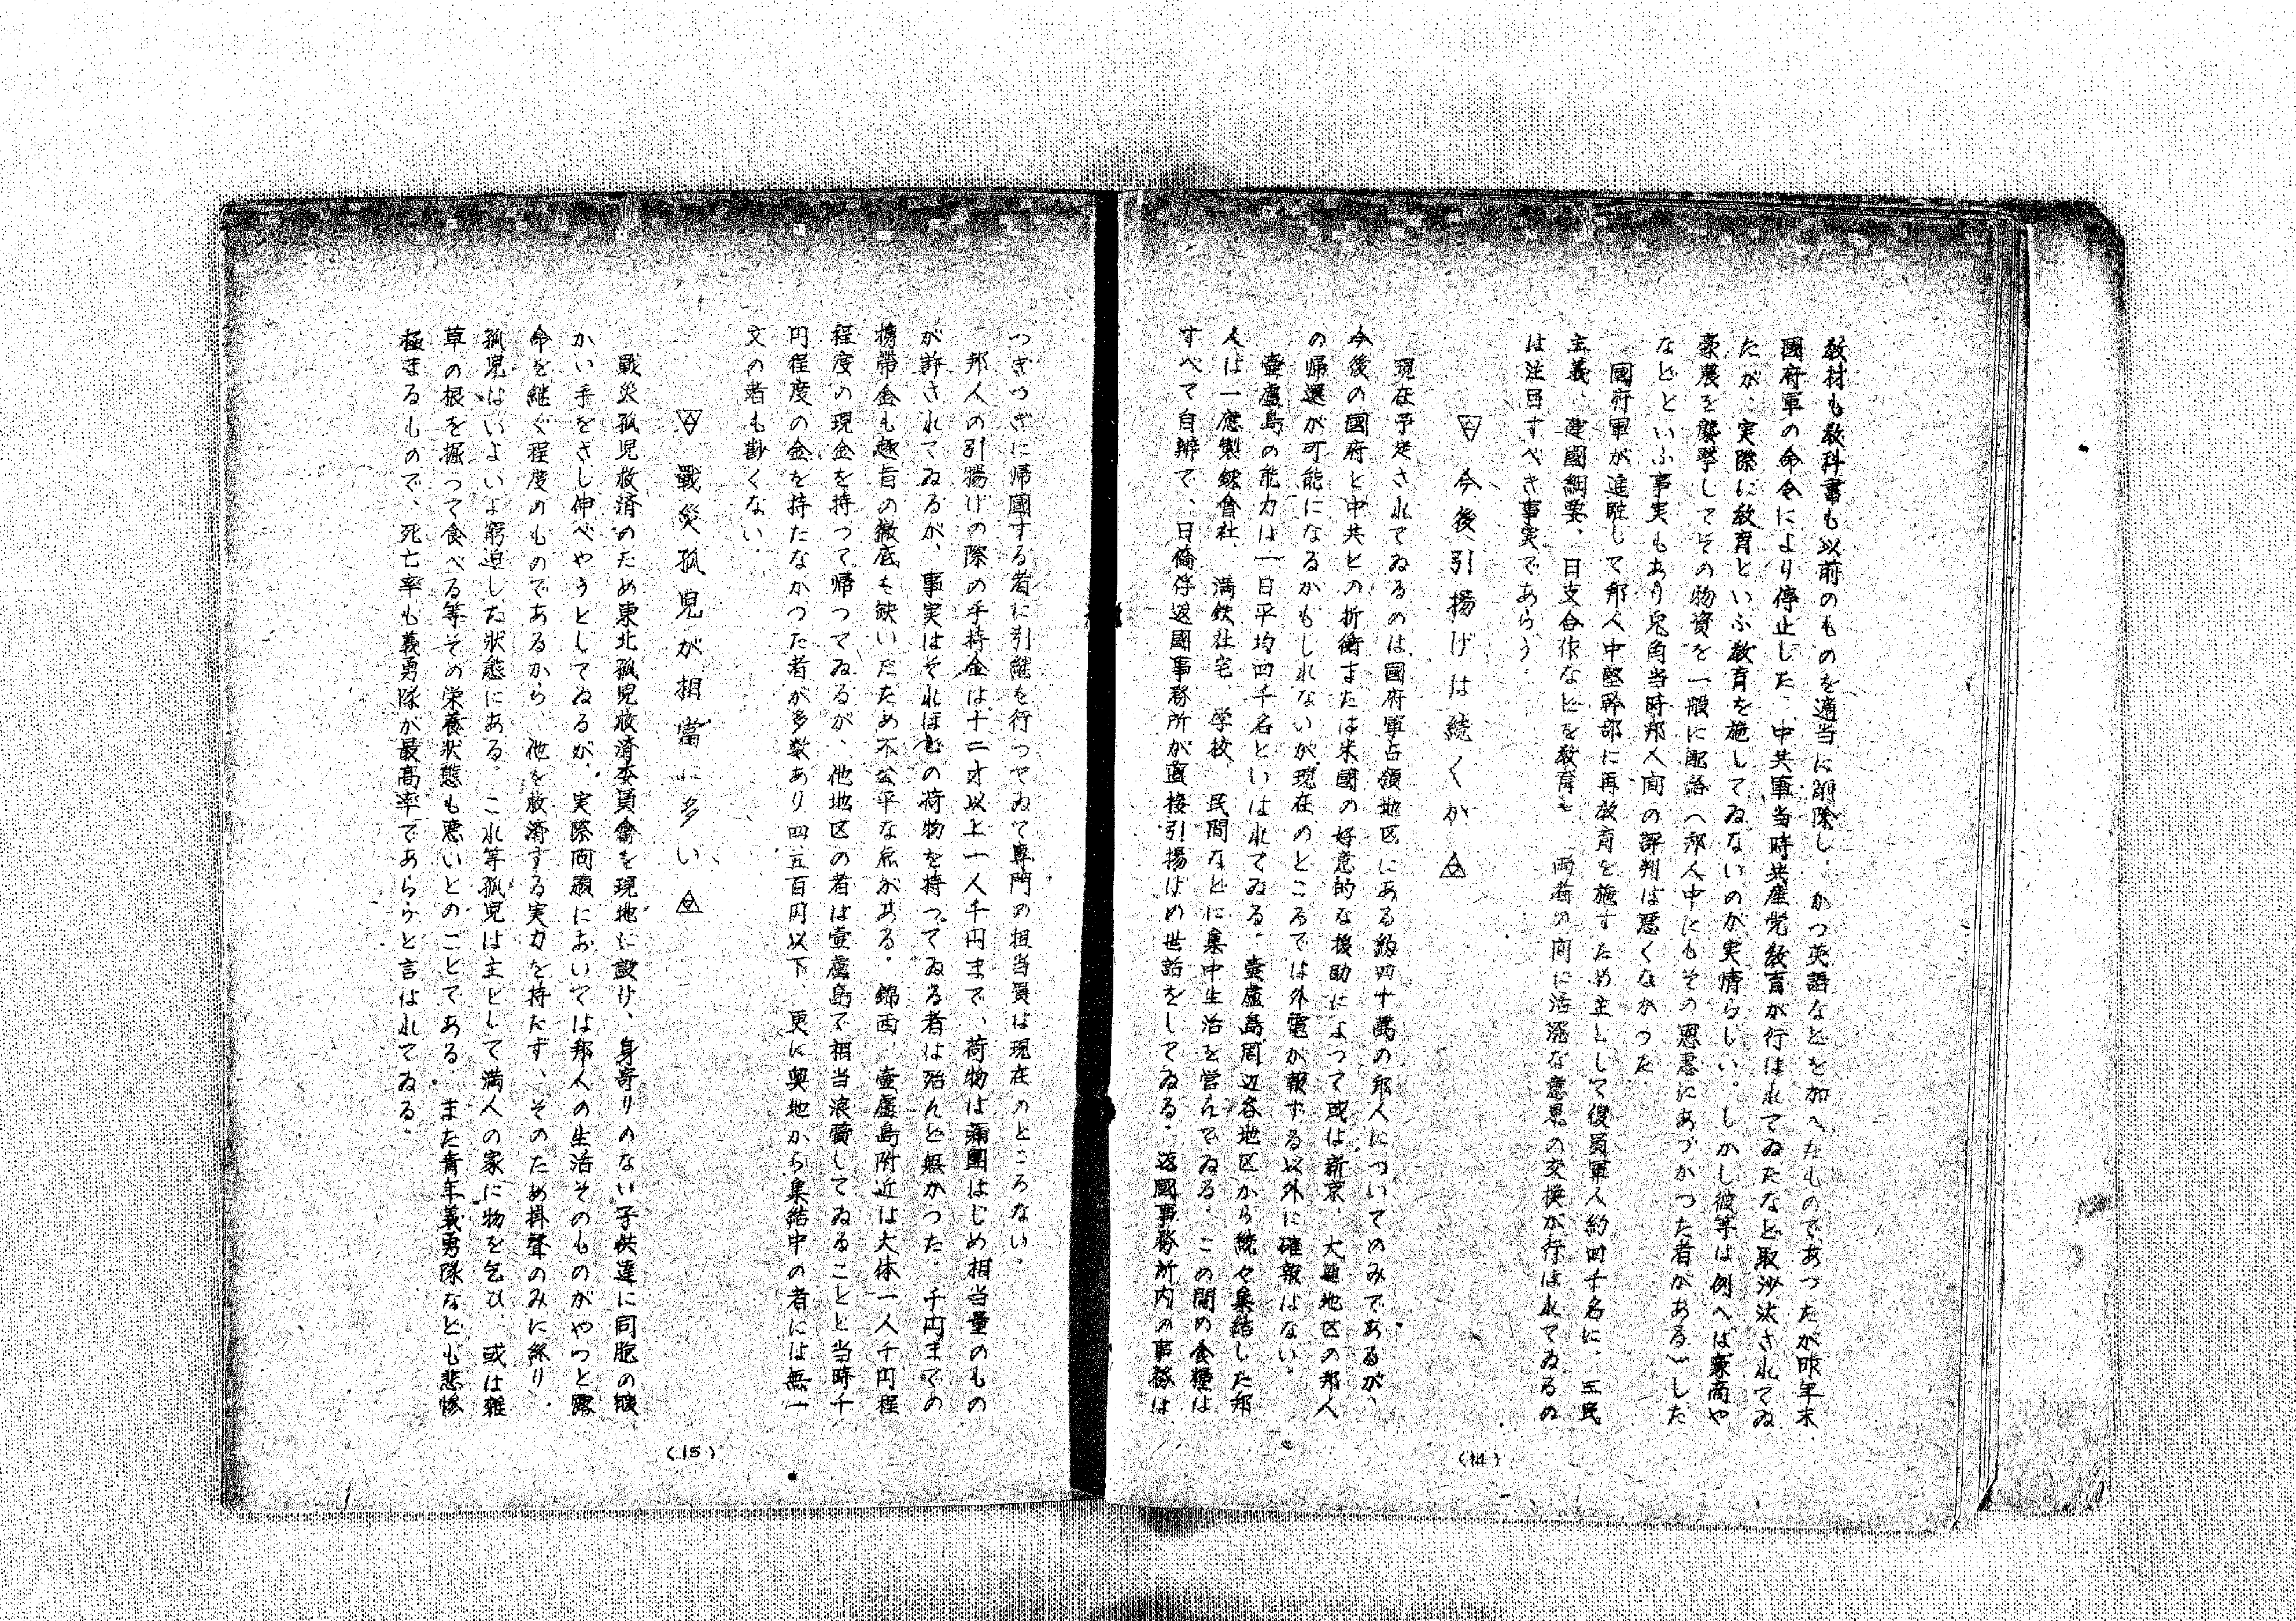 教材も教科書も以前のものを適当に削除し、かつ英語などを加へたものであつたが昨年末、
國府軍の命令により停止した、中共軍当時共産党教育が行はれてゐたなど取沙汰されてゐ
たが、実際に教育といふ教育を施してゐないのが実情らしい。しかし彼等は例へば豪商や
豪農を襲撃してその物資を一般に配給へ邦人中にもその恩恵にあづかつた者がある)した
などといふ事実もあり兎角当時邦人间の評判は悪くなかつた
國府軍が進駐して邦人中堅幹部に再教育を施すため主として復員軍人約四千名に、三民
主義、建國綱要、日支合作などを教育も 両者の间に活溌な意見の交換が行はれてゐるの
は注目すべき事実であらう.
今後引揚げは続くか
現在予定されてゐるのは國府軍占領地区にある約四十萬の邦人についてのみであるが、
今後の國府と中共との折衝または米國の好意的な援助によつて或は新京、大連地区の邦人
の帰還が可能になるかもしれないが現在のところでは外電が報ずる以外に確報はない.
壷盧島の能力は一日平均四千名といはれてゐる.壷盧島周辺各地区から続々集結した邦
人は一應製錬會社、満鉄社宅、学校、民間などに集中生活を営んでゐる.この間の食糧は
すべて自辨で、日僑俘返國事務所が直接引揚はめ世話をしてゐる.返國事務所内の事務は
(14)
つぎつぎに帰國する者に引継を行つてゐて専門の担当員は現在のところない.
邦人の引揚げの際の手持金は十二才以上一人千円まで、荷物は蒲團はじめ相当量のもの
が許されてゐるが、事実はそれほどの荷物を持つてゐる者は殆んど無かつた.千円までの
携帯金も趣旨の徹底を缺いだため不公平な点がある.錦西、壷盧島附近は大体一人千円程
程度の現金を持つて帰つてゐるが、他地区の者は壷盧島で相当浪費してゐることと当時千
円程度の金を持たなかつた者が多数あり四五百円以下、更に奥地から集結中の者には無一
文の者も尠くない.
戰災孤児が相當に多い
戰災孤児救済のため東北孤児救済委員會を現地に設け、身寄りのない子供達に同胞の暖
かい手をさし伸べやうとしてゐるが、実際问題においては邦人の生活そのものがやつと露
命を継ぐ程度のものであるから、他を救済する実力を持たず、そのため掛聲のみに終り、
孤児はいよいよ窮迫した状態にある.これ等孤児は主として満人の家に物を乞ひ、或は雑
草の根を掘つて食べる等その栄養状態も悪いとのことである.また青年義勇隊なども悲惨
極まるもので、死亡率も義勇隊が最高率であらうと言はれてゐる.
(15)